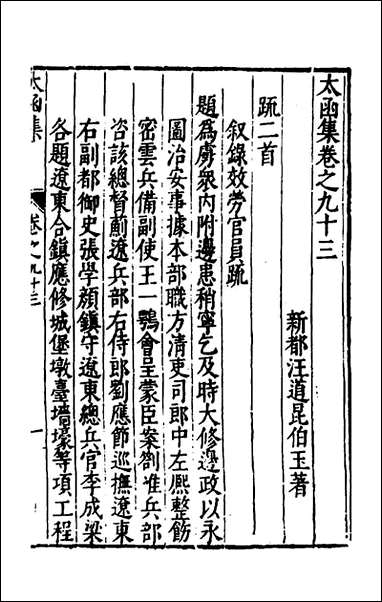 太函集卷之九十三
新都汪道昆伯玉著
疏二首
叙錄效勞官員疏
題爲虜衆內附邊患稍寧乞及時大修邊政以永
圖治安事據本部職方清吏司郎中左熙整飭
密雲兵備副使王一鶚會呈蒙臣案劄准兵部
咨該總督薊遼兵部右侍郎劉應節巡撫遼東
右副都御史張學顏鎮守遼東總兵官李成梁
各題遼東合鎮應修城堡墩臺墻壕等項工程
太函集
卷之九十三
一